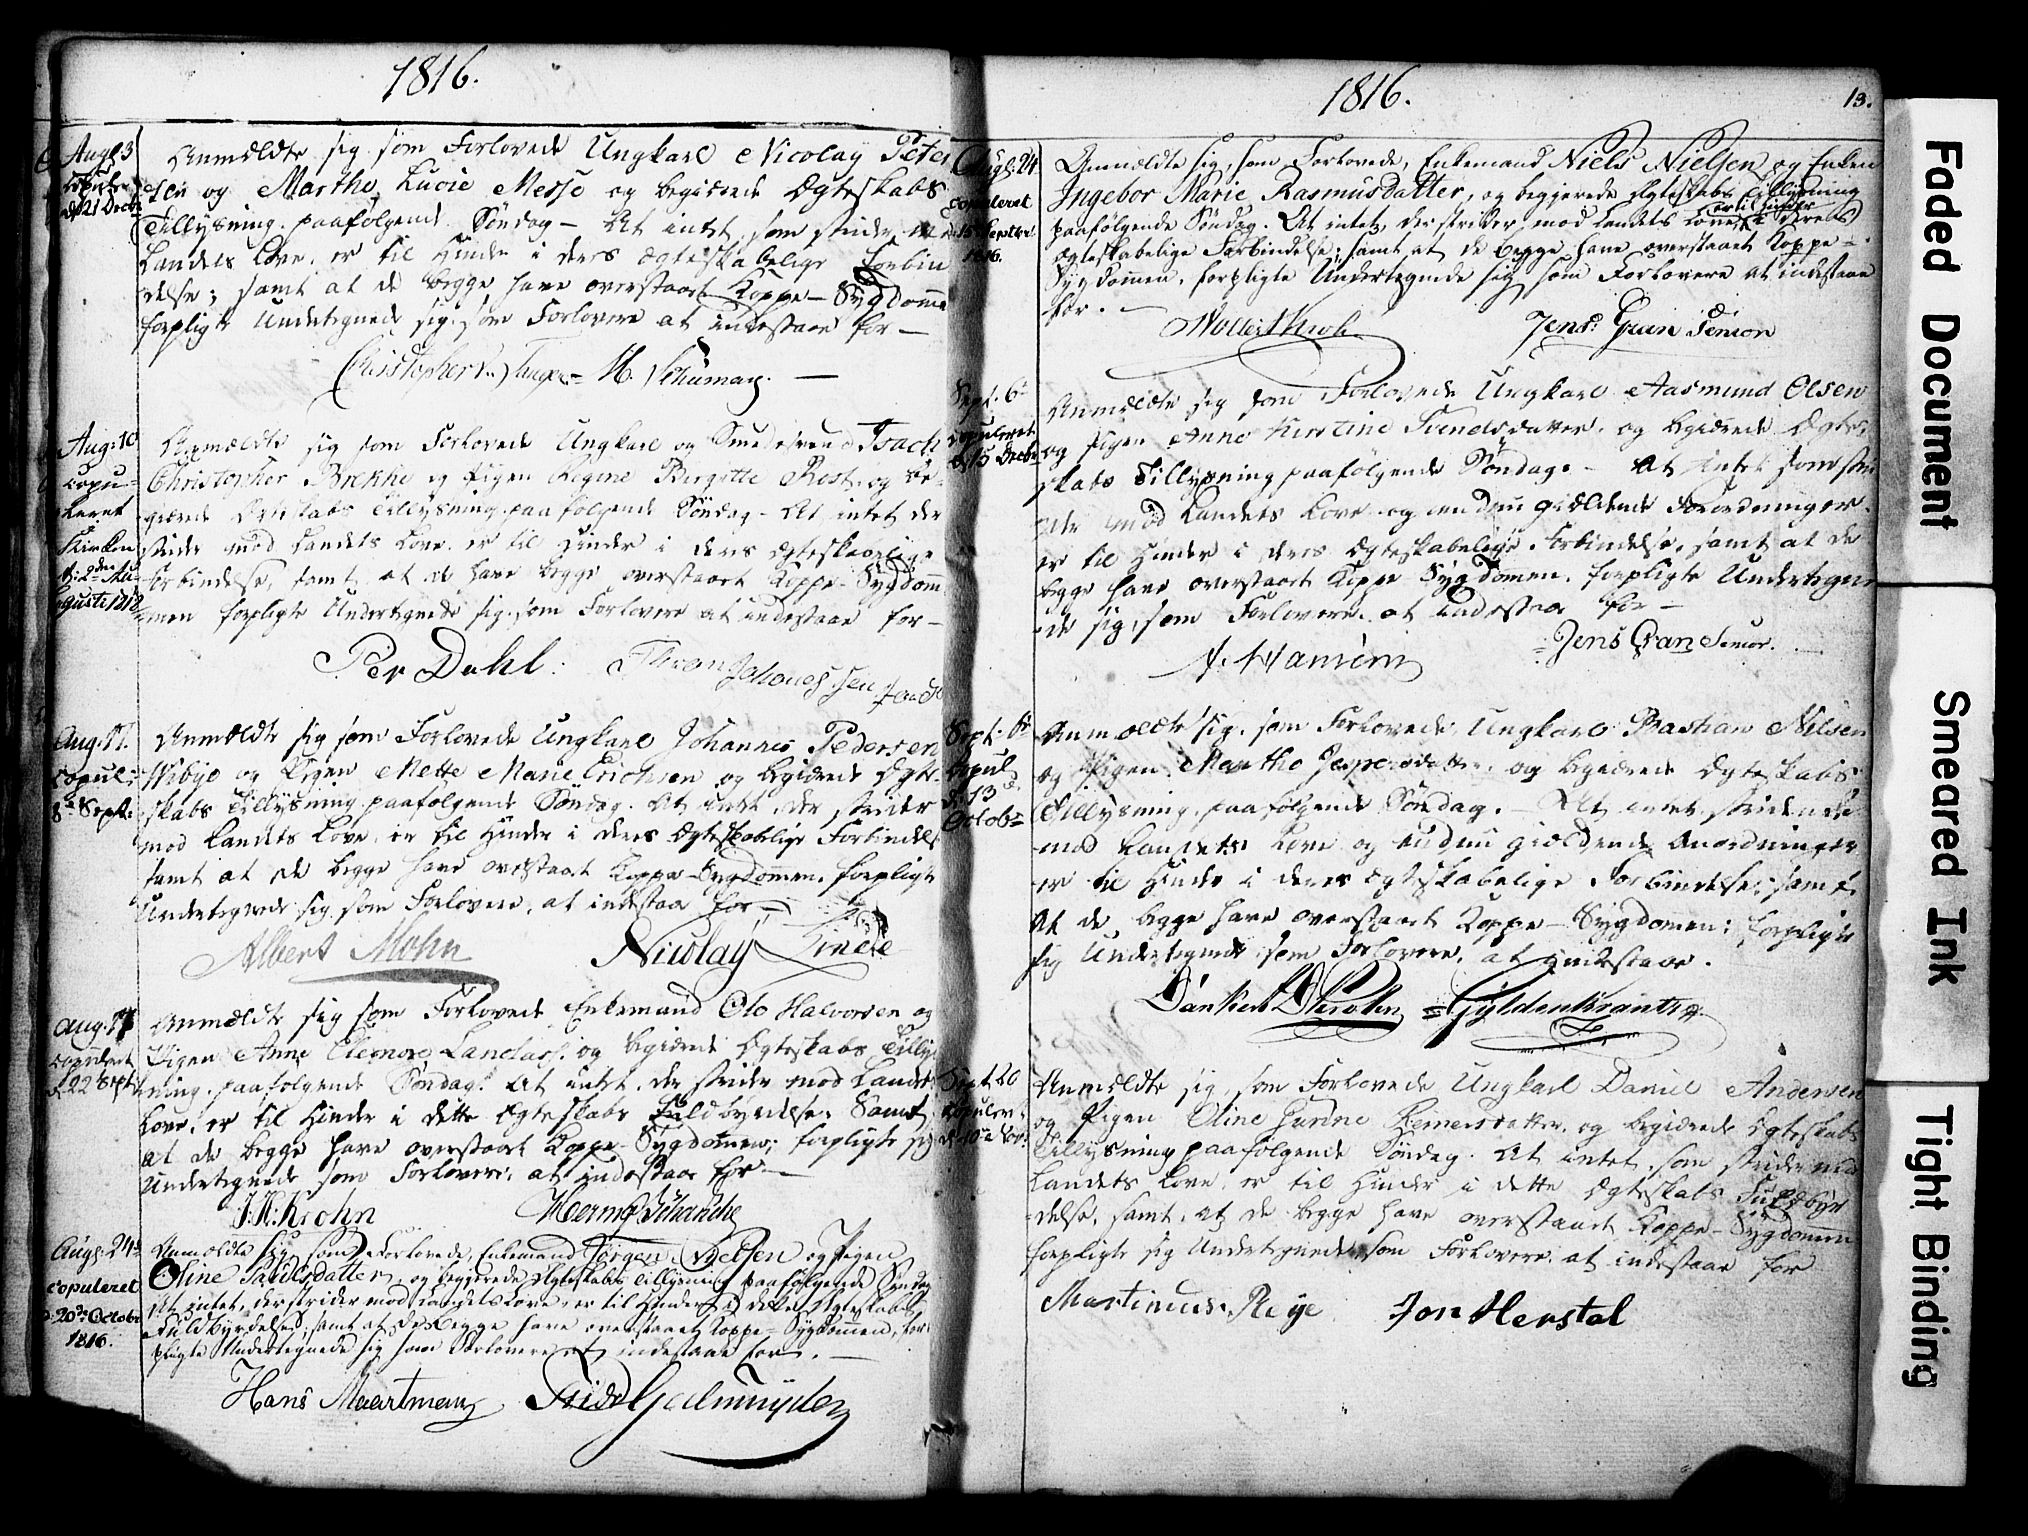 1816.
Augs: 3
copuleret
d: 21 Decbr
Anmældte sig som Forlovede Ungkarl Nicolay Peter
sen og Marthe Lucie Messe og begiærede Ægteskabs
Tillysning paafølgende Søndag – At intet som strider mod
Landets Love, er til Hinder i deres ægteskabelige Forbin
delse; samt at de begge have overstaaet Koppe-Sygdomme
forpligte Undertegnede sig som Forlovere at indestaae for –
Christopher Tanger M. Schuman.
Aug: 10
copu-
leret
i
Kirken
d: 2den Au-
gusti 1818
Anmældte sig som Forlovede Ungkarl og Smedesvend Isach
Christopher Brekke og Pigen Regine Birgitte Rost og be-
giærede Ægteskabs Tillysning paafølgende Søndag – At intet der
strider mod Landets Love er til Hinder i deres ægteskabelige
Forbindelse, samt at de have begge overstaaet Koppe-Sygdom
men forpligte Undertegnede sig som Forlovere at indestaae for –
Per Dahl. Thron Johanessen
Aug: 17.
Copul:
8de Septbr:
Anmældte sig som Forlovede Ungkarl Johannes Pedersen
Wibye og Pigen Mette Marie Erichsen og begiærede Ægte-
skabs Tillysning paafølgende Søndag. At intet der strider
mod Landets Love, er til Hinder i deres Ægteskabelige Forbindelse
samt at de begge have overstaaet Koppe-Sygdomen, forpligte
Undertegnede sig som Forlovere, at indestaae for –
Albert Mohn Nicolay Linde
Aug: 17
copuleret
d. 22 Sept
Anmældte sig som Forlovede Enkemand Ole Halvorsen og
Pigen Anne Eleonore Landaas. og begiærede Ægteskabs Tillys
ning paafølgende Søndag. At intet, der strider mod Landets
Love, er til Hinder i dette Ægteskabs Fuldbyrdelse; Samt
at de begge have overstaaet Koppe-Sygdommen; forpligte sig
Undertegnede som Forlovere, at indestaae for –
J. H: Krohn Herm: Schanche
Augs: 24.
copuleret
d: 20de Octobr
1816.
Anmældte sig, som Forlovede, Enkemand Jørgen Nielsen og Pigen
Oline Paulsdatter, og begjerede Ægteskabs Tillysning paafølgende Søndag
At intet, der strider mod Landets Love, er til Hinder i dette Ægteskabs
Fuldbyrdelse, samt at de begge have overstaaet Koppe-Sygdommen, for-
pligte Undertegnede sig som Forlovere at indestaae for. –
Hans Maartman Frid: Gielmuyden
1816.
13.
Augs: 24.
copuleret
d: 15 Septbr
1816.
Anmældte sig, som Forlovede, Enkemand Niels Nielsen og Enken
Ingebor Marie Rasmusdatter, og begjerede Ægteskabs Tillysning
paafølgende Søndag. At intet, der strider mod Landets Love, er til Hinder i deres
ægteskabelige Forbindelse; samt at de begge have overstaaet Koppe-
Sygdommen, forpligte Undertegnede sig som Forlovere at indestaae
for. –
Jens Gran Senior
Sept. 6te
copuleret
d: 15 Decbr
Anmældte sig som Forlovede Ungkarl Aasmund Olsen
og Pigen Anne Kirstine Svendsdatter, og begiærede Ægte-
skabs Tillysning paafølgende Søndag. – At intet som stri
der mod Landets Love og endnu giældende Forordninger
er til Hinder i deres Ægteskabelige Forbindelse, samt at de
begge have overstaaet Koppe Sygdomen, forpligte Undertegne
de sig, som Forlovere, at indestaae for –
J. Hansen Jens Gran Senior.
Sept. 6te
Copul
d. 13de
Octobr
Anmældte sig, som Forlovede Ungkarl Bastian Nilsen
og Pigen Marthe Jespersdatter, og begiærede Ægteskabs
Tillysning paafølgende Søndag. – At intet stridende
mod Landets Love og endnu giældende Anordninger
er til Hinder i deres Ægteskabelige Forbindelse; samt
At de begge have overstaaet Koppe-Sygdomen; forpligte
sig Undertegnede, som Forlovere, at indestaae.
Danckert D Krohn Gyldenkrantz
Sept. 20
Copuleret
d. 10de Nov:
Anmældte sig, som Forlovede Ungkarl Daniel Andersen
og Pigen Eline Gurine Reinersdatter, og begiærede Ægteskabs
Tillysning paafølgende Søndag. At intet, som strider mod
Landets Love, er til Hinder i dette Ægteskabs Fuldbyr
delse, samt, at de begge have overstaaet Koppe-Sygdommen
forpligte sig Undertegnede som Forlovere, at indestaae for
Martinus Reye Jon Herstal
Faded Document
Smeared Ink
Tight Binding